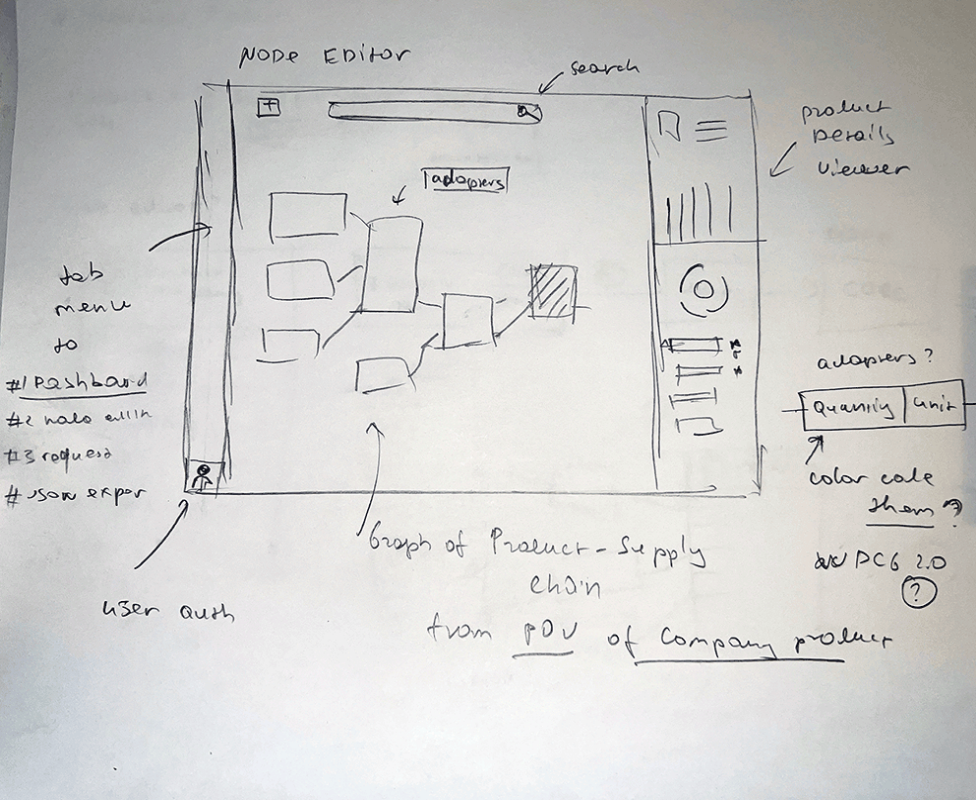 NODE EDITOR
search
product
Details
viewer
adapters
tab
menu
to
#1 Dashboard
#2
#3 request
# JSON expor
user auth
adapters?
Quantity | unit
color code
them?
DC6 2.0
?
Graph of Product-Supply
chain
from POV of Company product